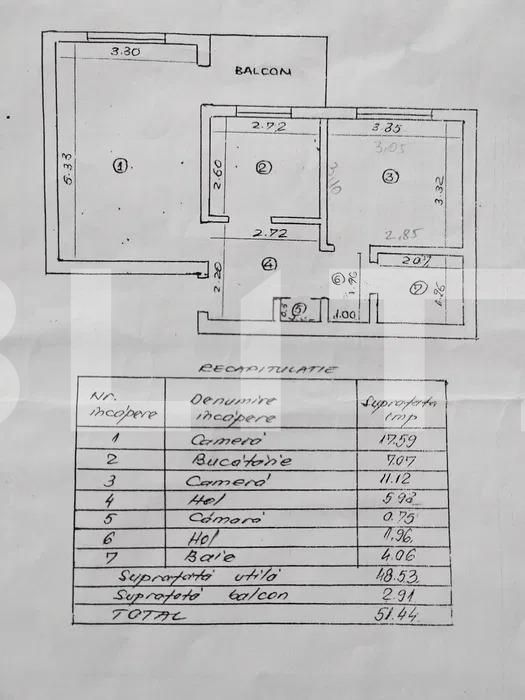 3.30
BALCON
2.72
3.35
3.05
5.33
1
2.60
2
3.10
3
3.32
2.72
2.85
4
2.07
2.20
6
1.96
7
1.96
5
1.00
BLITZ
RECAPITULATIE
Nr. încăpere Denumire încăpere Suprafata tmp
1 Cameră 17.59
2 Bucătărie 7.07
3 Cameră 11.12
4 Hol 5.98
5 Cămară 0.75
6 Hol 1.96
7 Baie 4.06
Suprafată utilă 48.53
Suprafată balcon 2.91
TOTAL 51.44